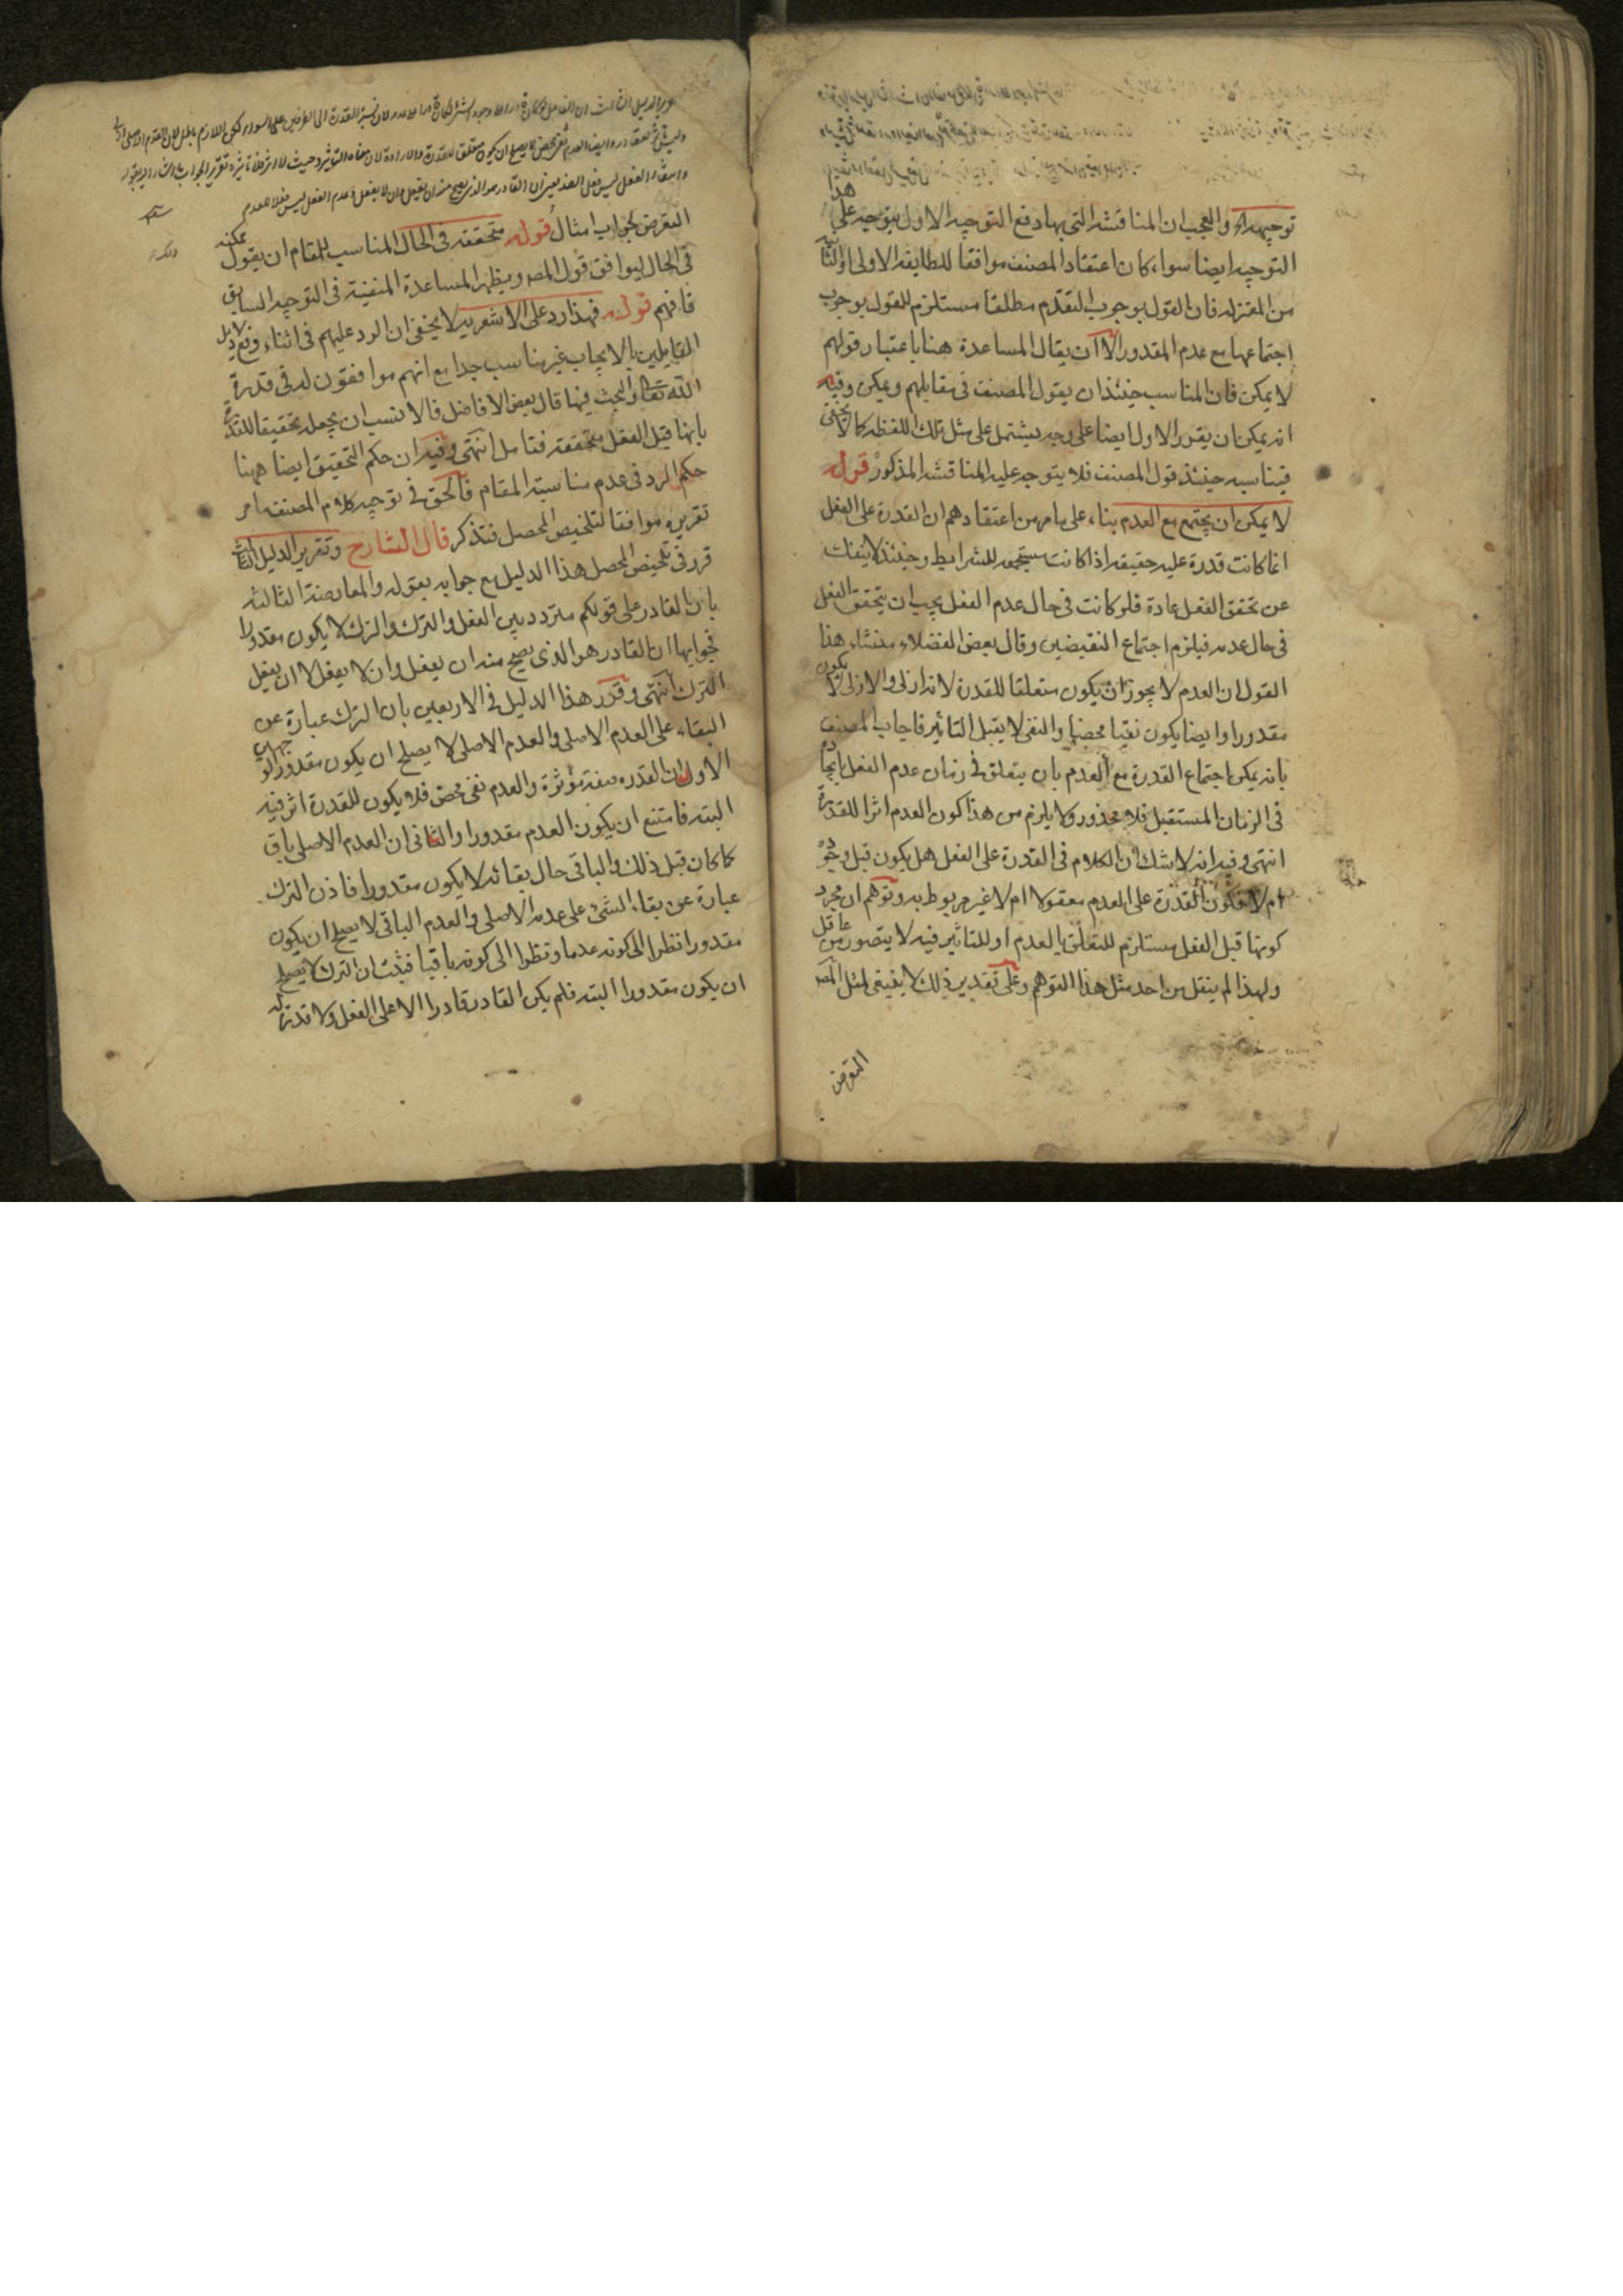 توجيهه اه والعجب ان المناقشه التى بها دفع التوجيه الاول يتوجه على هذا
التوجيه ايضا سواء كان اعتقاد المصنف موافقا للطايفه الاولى او الثانية
من المعتزله فان القول بوجوب التقدم مطلقا مستلزم للقول بوجوب
اجتماعها مع عدم المقدور الا ان يقال المساعدة هنا باعتبار قولهم
لا يمكن فان المناسب حينئذ ان يقول المصنف فى مقابلهم ويمكن وفيه
انه يمكن ان يقرر الاول ايضا على وجه يشتمل على مثل تلك اللفظه كما لا يخفى
فيناسبه حينئذ قول المصنف فلا يتوجه عليه المناقشه المذكور قوله
لا يمكن ان يجتمع مع العدم بناء على ما مر من اعتقادهم ان القدرة على الفعل
انما كانت قدرة عليه حقيقه اذا كانت مستجمعه للشرايط وحينئذ لا ينفك
عن تحقق الفعل عادة فلو كانت فى حال عدم الفعل يجب ان يتحقق الفعل
فى حال عدمه فيلزم اجتماع النقيضين وقال بعض الفضلاء منشاء هنا
القول ان العدم لا يجوز ان يكون متعلقا للقدرة لانه ازلى والازلى لا يكون
مقدورا وايضا يكون نفيا محضا والنفى لا يقبل التاثير فاجاب المصنف
بانه يمكن اجتماع القدرة مع العدم بان يتعلق فى زمان عدم الفعل بايجاده
فى الزمان المستقبل فلا محذور ولا يلزم من هذا كون العدم اثرا للقدرة
انتهى وفيه انه لا شك ان الكلام فى القدرة على الفعل هل يكون قبل وجوده
ام لا فكون القدرة على العدم معقولا ام لا غير مربوط به وتوهم ان مجرد
كونها قبل الفعل مستلزم للتعلق بالعدم او للتاثير فيه لا يتصور من عاقل
ولهذا لم ينقل من احد مثل هذا التوهم وعلى تقدير ذلك لا ينبغى لمثل المصـ
التعرض
وليس شئ مقدورا وايضا العدم نفى محض لا يصلح ان يكون متعلق للقدرة والارادة لان معناه التاثير وحيث لا اثر فلا تاثير وتقرير الجواب
وانتفاء الفعل ليس فعل الضد يعنى ان القادر هو الذى يصح منه ان يفعل وان لا يفعل وعدم الفعل ليس فعلا للعدم
التعرض لجواب امثال قوله متحققه فى الحال المناسب للمقام ان يقول ممكنه
فى الحال ليوافق قول المصـ ويظهر المساعدة المنفية فى التوجيه السابق
فافهم قوله فهذا رد على الاشعريه لا يخفى ان الرد عليهم فى اثناء
القايلين بالايجاب غير مناسب جدا مع انهم موافقون له فى قدرة
الله تعالى والبحث فيها قال بعض الافاضل فالانسب ان يجعل تحقيقا للقدرة
بانها قبل الفعل متحققه فتامل انتهى وفيه ان حكم التحقيق ايضا ههنا
حكم الرد فى عدم مناسبته المقام فالحق فى توجيه كلام المصنف ما مر
تقريره موافقا لتلخيص المحصل فتذكر قال الشارح وتقرير الدليل الثالث
قرر فى تلخيص المحصل هذا الدليل مع جوابه بقوله والمعارضة الثالثه
بان القادر على قولكم متردد بين الفعل والترك والترك لا يكون مقدورا
فجوابها ان القادر هو الذى يصح منه ان يفعل وان لا يفعل لا ان يفعل
الترك انتهى وقرر هذا الدليل فى الاربعين بان الترك عبارة عن
البقاء على العدم الاصلى والعدم الاصلى لا يصلح ان يكون مقدورا لوجهين
الاول ان القدره صفه مؤثرة والعدم نفى محض فلا يكون للقدرة اثر فيه
البته فامتنع ان يكون العدم مقدورا والثانى ان العدم الاصلى باق
كما كان قبل ذلك والباقى حال بقائه لا يكون مقدورا فاذن الترك
عبارة عن بقاء الشئ على عدمه الاصلى والعدم الباقى لا يصلح ان يكون
مقدورا نظرا الى كونه عدما ونظرا الى كونه باقيا فثبت ان الترك لا يصلح
ان يكون مقدورا البته فلم يكن القادر قادرا الا على الفعل ولا قدرة له